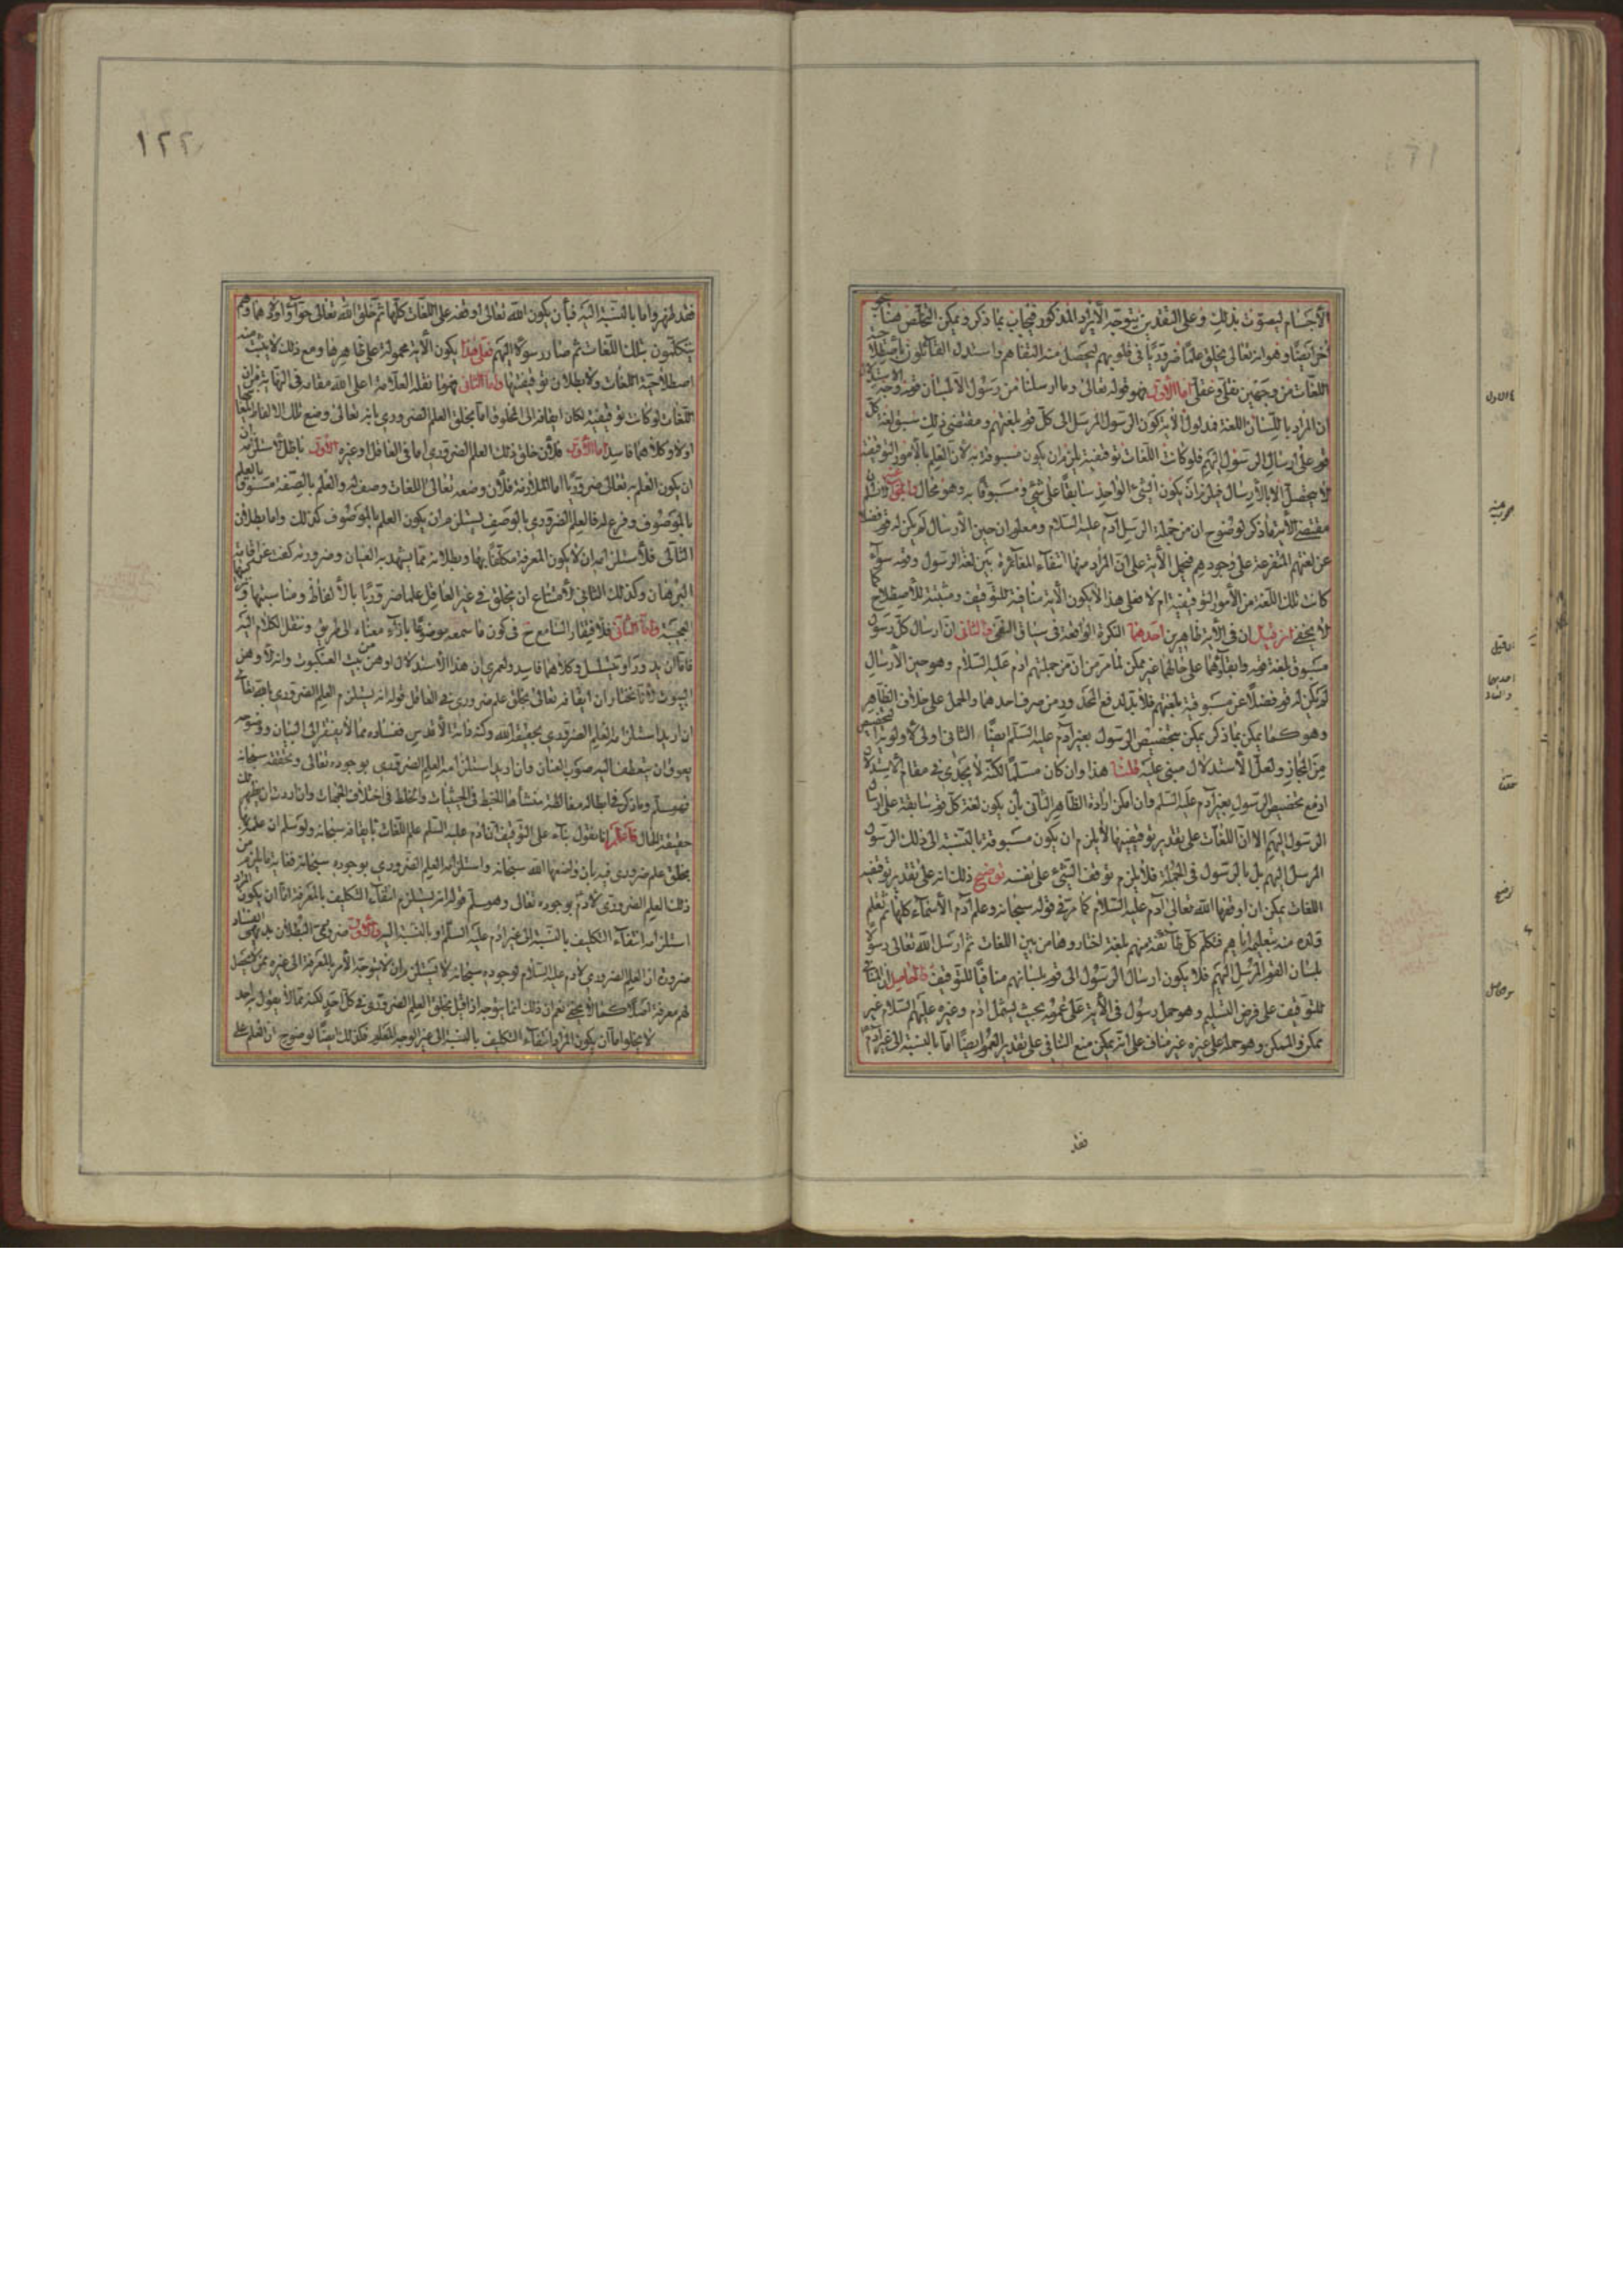 الأجسام ليصوت بذلك وعلى التقديرين يتوجه الايراد المذكور فيجاب بما ذكر ويمكن التخلص هنا بوجه
اخر ايضا وهو انه تعالى يخلق علما ضروريا في قلوبهم ليحصل منه التفاهم واستدل القائلون باصطلاحية
اللغات من وجهين نقلي وعقلي اما الاول فهو قوله تعالى وما ارسلنا من رسول الا بلسان قومه وجه الاستدلال
ان المراد باللسان اللغة فمدلول الآية كون الرسول المرسل الى كل قوم بلغتهم ومقتضى ذلك سبق لغة كل
قوم على ارسال الرسول اليهم فلو كانت اللغات توقيفية يلزم ان يكون مسبوقة به لان العلم بالامور التوقيفية
لا يحصل الا بالارسال فيلزم ان يكون الشيء الواحد سابقا على شيء ومسبوقا به وهو محال والجواب
مقتضى الآية ما ذكر لوضوح ان من جملة الرسل آدم عليه السلام ومعلوم ان حين الارسال لم يكن له قوم فضلا
عن لغتهم المتفرعة على وجودهم فتحمل الآية على ان المراد منها انتفاء المغايرة بين لغة الرسول وقومه سواء
كانت تلك اللغة من الامور التوقيفية ام لا فعلى هذا لا يكون الآية منافية للتوقيف ومثبتة للاصطلاح
لا يخفى ان في الآية ظاهرين احدهما النكرة الواقعة في سياق النفي والثاني ان ارسال كل رسول
مسبوق بلغة قومه وابقاؤهما على حالهما غير ممكن لما مر من ان من جملتهم آدم عليه السلام وهو حين الارسال
لم يكن له قوم فضلا عن مسبوقية بلغتهم فلا بد لدفع المحذور من صرف احدهما والحمل على خلاف الظاهر
وهو كما يمكن بما ذكر يمكن بتخصيص الرسول بغير آدم عليه السلام ايضا الثاني اولى لاولوية التخصيص
من المجاز ولعل الاستدلال مبني عليه قلنا هذا وان كان مسلما لكنه لا يجدي في مقام الاستدلال
اذ مع تخصيص الرسول بغير آدم عليه السلام وان امكن ارادة الظاهر الثاني بان يكون لغة كل قوم سابقة على ارسال
الرسول اليهم الا ان اللغات على تقدير توقيفيتها لا يلزم ان يكون مسبوقة بالنسبة الى ذلك الرسول
المرسل اليهم بل بالرسول في الجملة فلا يلزم توقف الشيء على نفسه توضيح ذلك انه على تقدير توقيفية
اللغات يمكن ان اوقفها الله تعالى آدم عليه السلام كما مر في قوله سبحانه وعلم آدم الاسماء كلها ثم تعلم
اولاده منه بتعليمه اياهم فتكلم كل طائفة منهم بلغة اختاروها من بين اللغات ثم ارسل الله تعالى رسولا
بلسان القوم المرسل اليهم فلا يكون ارسال الرسول الى قوم بلسانهم منافيا للتوقيف والحاصل ان المنافي
للتوقيف على فرض التسليم وهو حمل رسول في الآية على عمومه بحيث يشمل آدم وغيره عليهم السلام غير
ممكن والممكن وهو حمله على غيره غير مناف على انه يمكن منع التنافي على تقدير العموم ايضا اما بالنسبة الى غير آدم
فقد
١٢٢
فقد ظهر واما بالنسبة اليه فبأن يكون الله تعالى اوقفه على اللغات كلها ثم خلق الله تعالى حواء واولادهما وهم
يتكلمون بتلك اللغات ثم صار رسولا اليهم فعلى هذا يكون الآية محمولة على ظاهرها ومع ذلك لا يثبت منه
اصطلاحية اللغات ولا بطلان توقيفيتها واما الثاني فهو ما نقله العلامة اعلى الله مقامه في النهاية من ان
اللغات لو كانت توقيفية لكان ايقافه الى المخلوق اما بخلق العلم الضروري بانه تعالى وضع تلك الالفاظ لمعانيها
اولا وكلاهما فاسد اما الاول فلان خلق ذلك العلم الضروري اما في العاقل او غيره الاول باطل لاستلزامه
ان يكون العلم به تعالى ضروريا اما الملازمة فلان وضعه تعالى اللغات وصف له والعلم بالصفة مسبوق بالعلم
بالموصوف وفرع له فالعلم الضروري بالوصف يستلزم ان يكون العلم بالموصوف كذلك واما بطلان
الثاني فلاستلزامه ان لا يكون المعرفة مكلفا بها وبطلانه مما يشهد به العيان وضرورته كفت عن اقامة
البرهان وكذلك الثاني لامتناع ان يخلق في غير العاقل علما ضروريا بالالفاظ ومناسبتها
العجيبة واما الثاني فلافتقار السامع ح في كون ما سمعه موضوعا بازاء معناه الى طريق وننقل الكلام اليه
فاما ان يدور او يتسلسل وكلاهما فاسد ولعمري ان هذا الاستدلال اوهن من بيت العنكبوت وانه لاوهن
البيوت لانا نختار ان ايقافه تعالى بخلق علم ضروري في العاقل قوله انه يستلزم العلم الضروري بالله تعالى
ان اريد استلزامه للعلم الضروري بحقيقة الله وكنه ذاته الاقدس ففساده مما لا يفتقر الى البيان
وان اريد استلزامه العلم الضروري بوجوده تعالى وتحققه سبحانه
فهو مسلم وما ذكر في ابطاله مغالطة منشأها الخبط في الحيثيات والخلط في اختلاف الجهات وان اردت ان يظهر لك
حقيقة المقال فاعلم انا نقول بناء على التوقيف ان آدم عليه السلام علم اللغات بايقافه سبحانه ولو سلم ان علمه
بخلق علم ضروري فيه بان واضعها الله سبحانه واستلزامه العلم الضروري بوجوده سبحانه فغاية ما يلزم من
ذلك العلم الضروري لآدم بوجوده تعالى وهو مسلم قوله انه يستلزم انتفاء التكليف بالمعرفة اما ان يكون المراد
استلزامه انتفاء التكليف بالنسبة الى غير آدم عليه السلام او بالنسبة اليه والاول ضروري البطلان بديهي الفساد
ضرورة ان العلم الضروري لآدم عليه السلام لوجوده سبحانه لا يستلزم ان لا يتوجه الامر بالمعرفة الى غيره ممن لا يحصل
لهم معرفة اصلا كما لا يخفى نعم ان ذلك انما يتوجه اذا قيل بخلق العلم الضروري في كل احد لكنه مما لا يقول به احد
لا يخلو اما ان يكون المراد انتفاء التكليف بالنسبة الى غير الوجه المعلوم فكذلك ايضا لوضوح ان العلم على